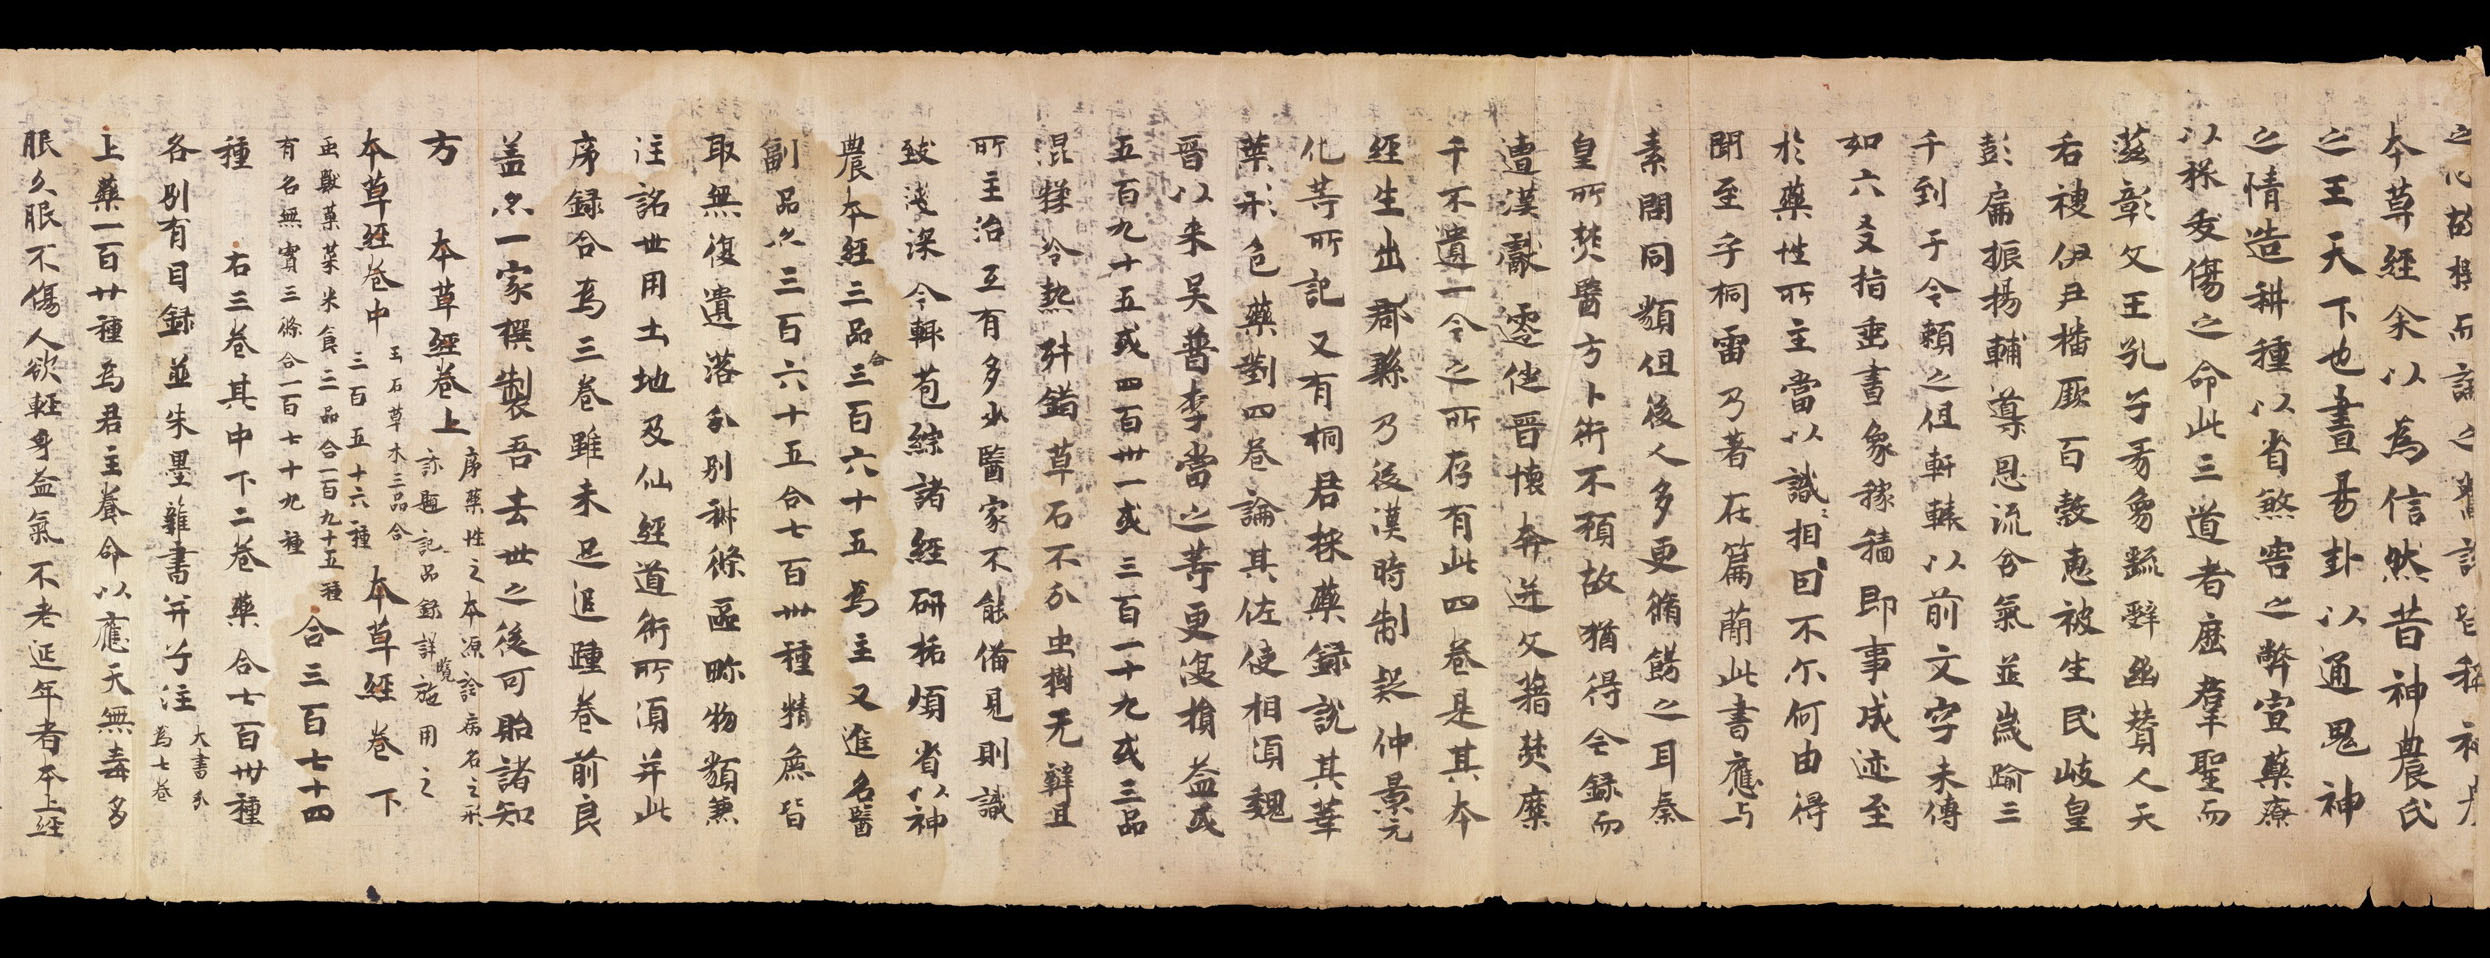 本草經余以為信然昔神農氏
之王天下也畫易卦以通鬼神
之情造耕種以省煞害之弊宣藥療
以拯夭傷之命此三道者歷羣聖而
滋彰文王孔子彖象繇辭幽贊人天
后稷伊尹播厥百穀惠被生民岐皇
彭扁振揚輔導恩流含氣並歲踰三
千到于今賴之但軒轅以前文字未傳
如六爻指垂畫象稼穡即事成迹至
於藥性所主當以識〻相因不尒何由得
聞至乎桐雷乃著在篇蕳此書應与
素問同類但後人多更脩餝之耳秦
皇所焚醫方卜術不預故猶得全録而
遭漢獻遷徙晉懷奔迸文藉焚糜
千不遺一今之所存有此四卷是其本
經生出郡縣乃後漢時制疑仲景元
化等所記又有桐君採藥録說其華
葉形色藥對四卷論其佐使相須魏
晉以来吴普李當之等更復損益或
五百九十五或四百卅一或三百一十九或三品
混糅冷熱舛錯草石不分虫樹无辨且
所主治互有多少醫家不能俻見則識
致淺深今輙苞綜諸經研栝煩省以神
農本經三品合三百六十五為主又進名醫
副品亦三百六十五合七百卅種精麁皆
取無復遺落分別科條區畛物類兼
注詺世用土地及仙經道術所須并此
序録合為三卷雖未足追踵前良
盖亦一家撰製吾去世之後可貽諸知
方　本草經卷上 序藥性之本源詮病名之形診題記品録詳覽施用之
本草經卷中 玉石草木三品合三百五十六種　本草經卷下
虫獸菓菜米食三品合一百九十五種有名無實三條合一百七十九種　合三百七十四
種　右三卷其中下二卷藥合七百卅種
各別有目録並朱墨雜書并子注 大書分為七卷
上藥一百廿種為君主養命以應天無毒多
服久服不傷人欲軽身益氣不老延年者本上經